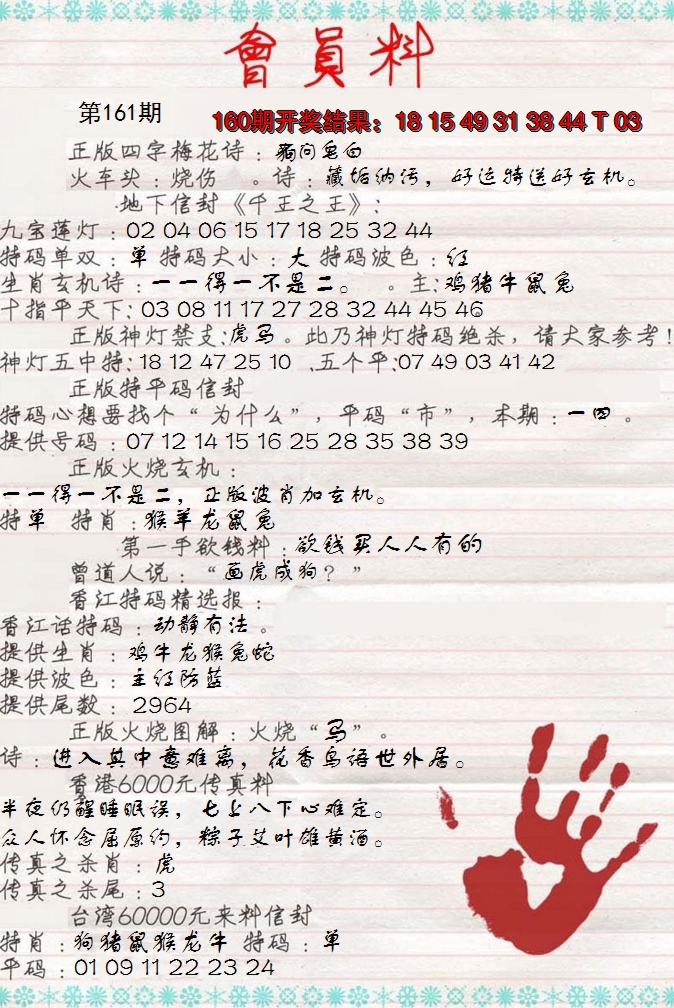 會員料
第161期
160期开奖结果：18 15 49 31 38 44 T 03
正版四字梅花诗：狗问皂白
火车头：烧伤 。诗：藏垢纳污，好运特送好玄机。
地下信封《千王之王》：
九宝莲灯：02 04 06 15 17 18 25 32 44
特码单双：单 特码大小：大 特码波色：红
生肖玄机诗：一一得一不是二。 。主：鸡猪牛鼠兔
十指平天下：03 08 11 17 27 28 32 44 45 46
正版神灯禁支：虎马。此乃神灯特码绝杀，请大家参考！
神灯五中特：18 12 47 25 10 、五个平：07 49 03 41 42
正版特平码信封
特码心想要找个“为什么”，平码“市”，本期：一四。
提供号码：07 12 14 15 16 25 28 35 38 39
正版火烧玄机：
一一得一不是二，正版波肖加玄机。
特单 特肖：猴羊龙鼠兔
第一手欲钱料：欲钱买人人有的
曾道人说：“画虎成狗？”
香江特码精选报：
香江话特码：动静有法。
提供生肖：鸡牛龙猴兔蛇
提供波色：主红防蓝
提供尾数：2964
正版火烧图解：火烧“马”。
诗：进入其中意难离，花香鸟语世外居。
香港6000元传真料
半夜仍醒睡眠误，七上八下心难定。
众人怀念屈原约，粽子艾叶雄黄酒。
传真之杀肖：虎
传真之杀尾：3
台湾60000元来料信封
特肖：狗猪鼠猴龙牛 特码：单
平码：01 09 11 22 23 24